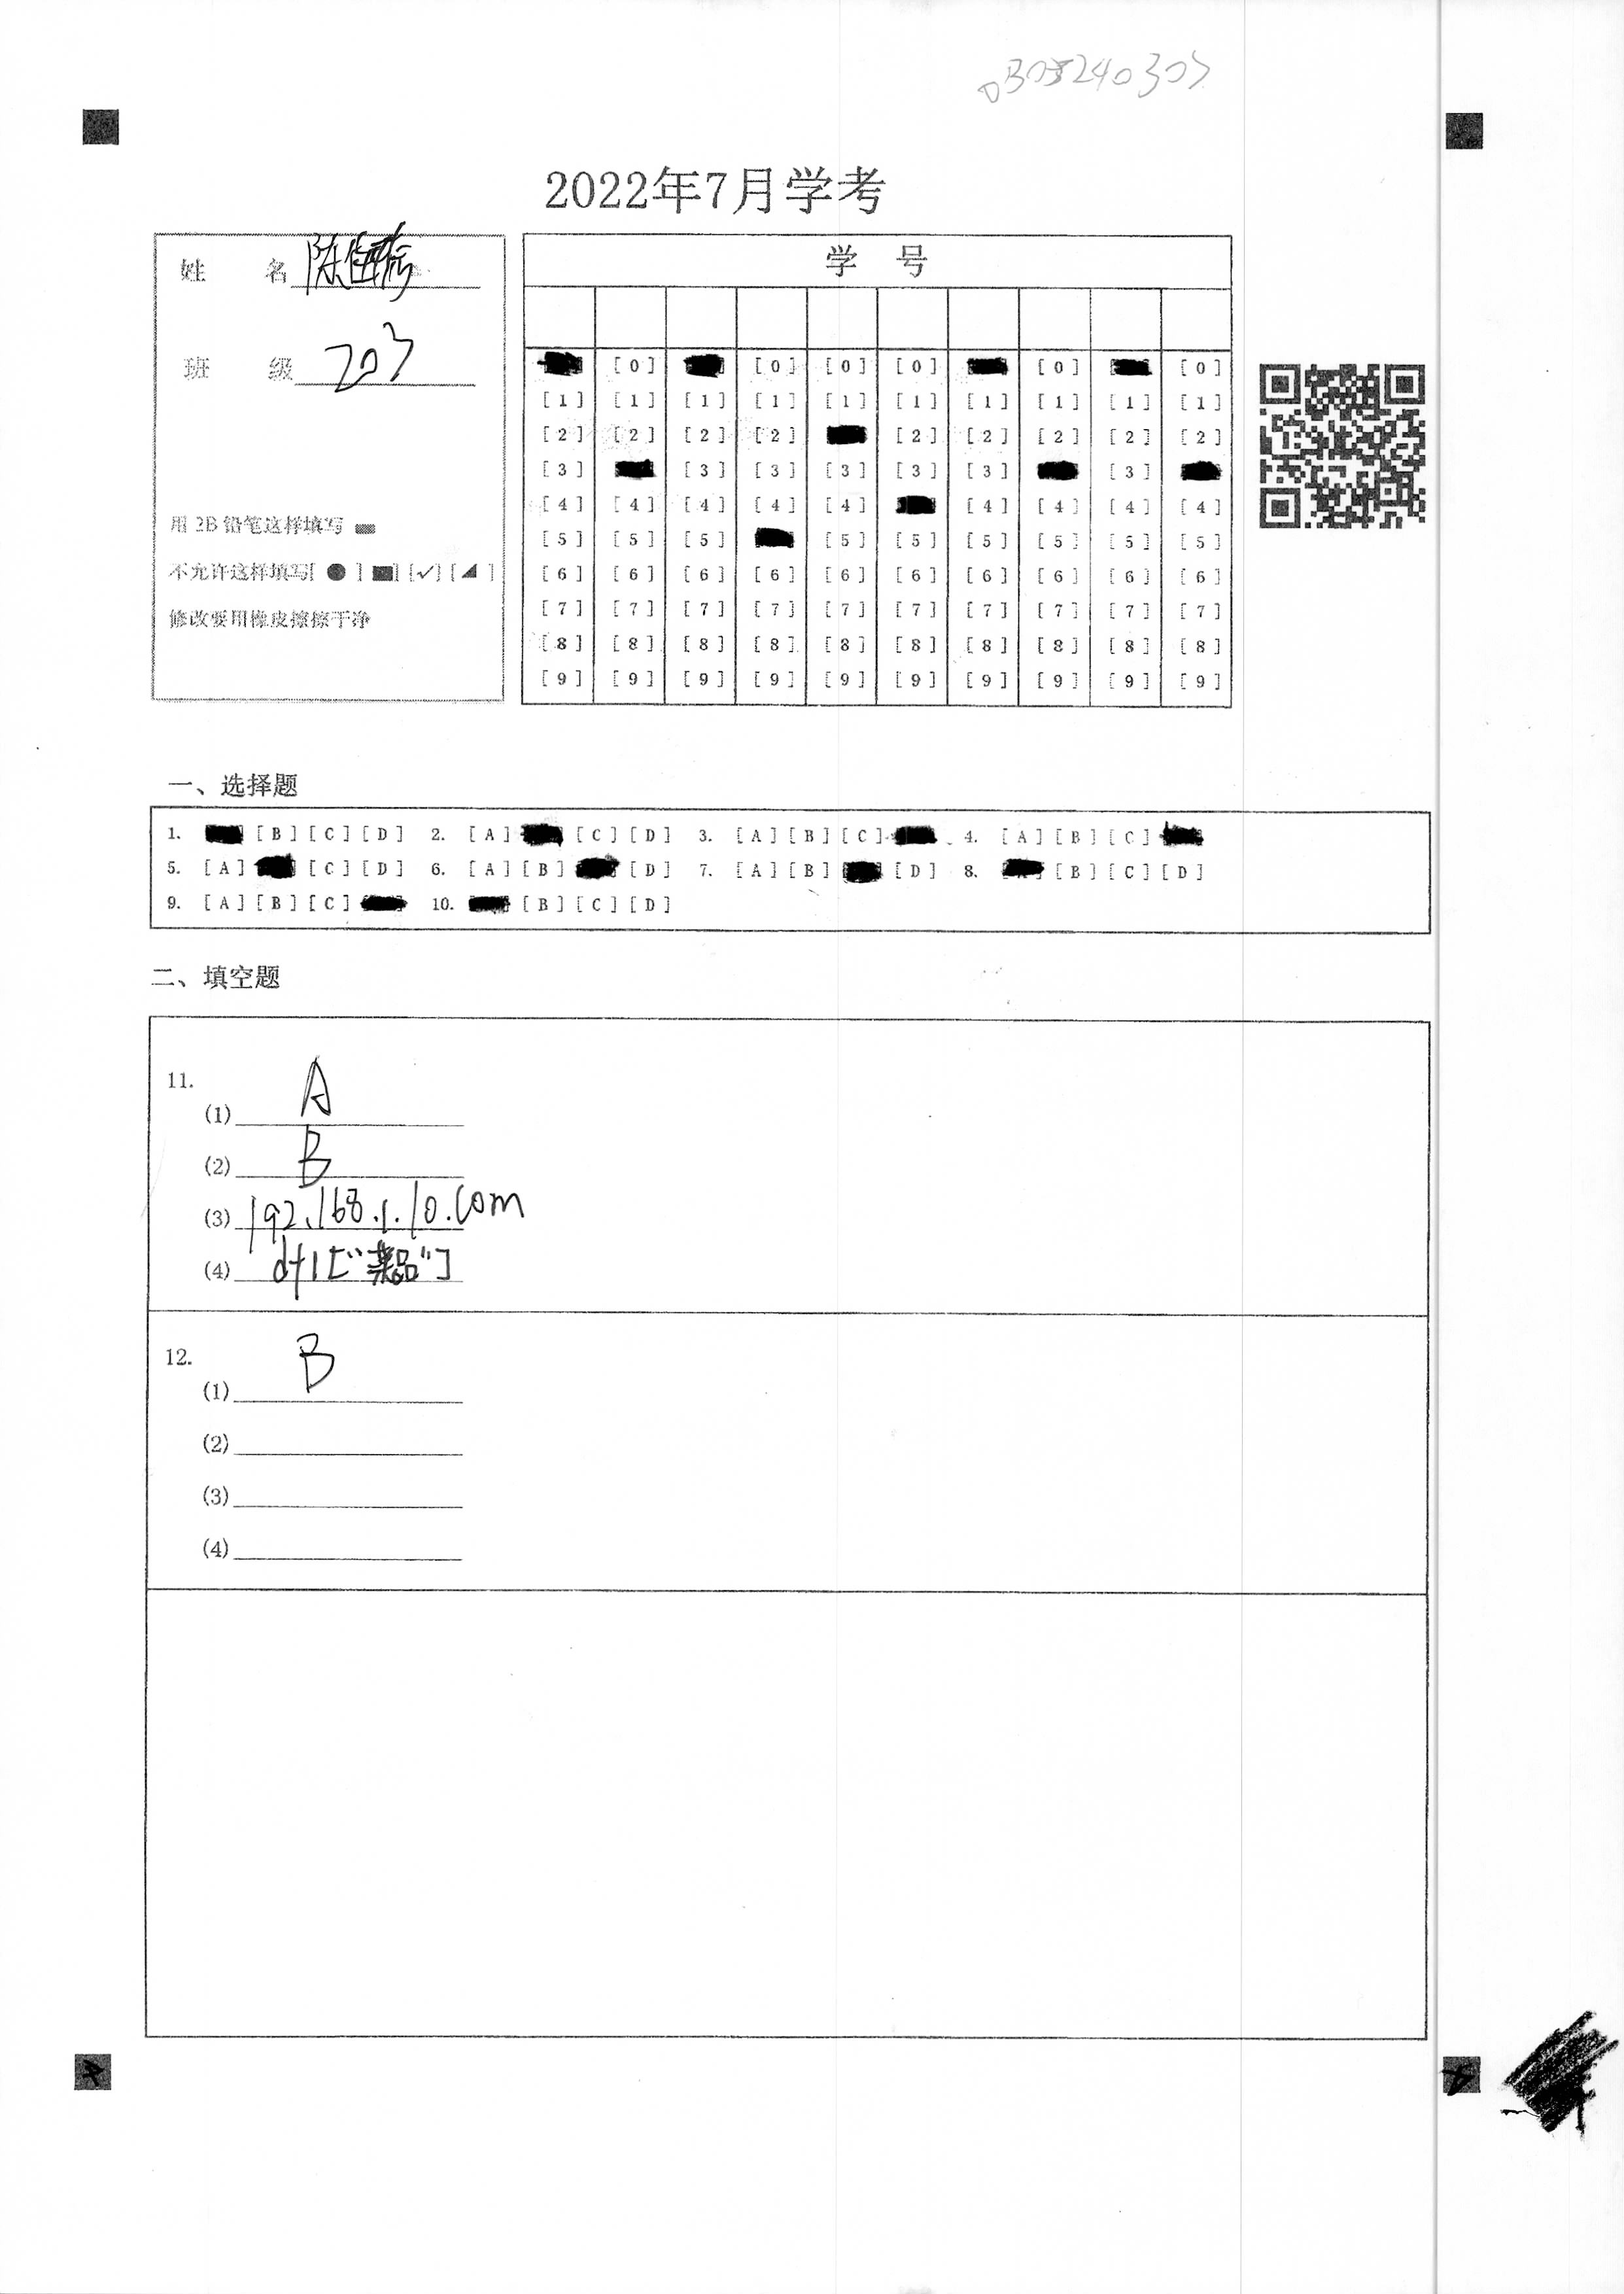 0305240303
2022年7月学考
姓 名 陈
班 级 203
用2B铅笔这样填写
不允许这样填写[ ● ] [■] [✓] [◢ ]
修改要用橡皮擦擦干净
学 号
[0] [0] [0] [0] [0]
[1] [1] [1] [1] [1] [1] [1] [1] [1] [1]
[2] [2] [2] [2] [2] [2] [2] [2] [2]
[3] [3] [3] [3] [3] [3] [3]
[4] [4] [4] [4] [4] [4] [4] [4] [4]
[5] [5] [5] [5] [5] [5] [5] [5] [5]
[6] [6] [6] [6] [6] [6] [6] [6] [6] [6]
[7] [7] [7] [7] [7] [7] [7] [7] [7] [7]
[8] [8] [8] [8] [8] [8] [8] [8] [8] [8]
[9] [9] [9] [9] [9] [9] [9] [9] [9] [9]
一、选择题
1. [B] [C] [D] 2. [A] [C] [D] 3. [A] [B] [C] 4. [A] [B] [C]
5. [A] [C] [D] 6. [A] [B] [D] 7. [A] [B] [D] 8. [B] [C] [D]
9. [A] [B] [C] 10. [B] [C] [D]
二、填空题
11.
(1) A
(2) B
(3) 192.168.1.10.com
(4) df1["菜品"]
12.
(1) B
(2)
(3)
(4)